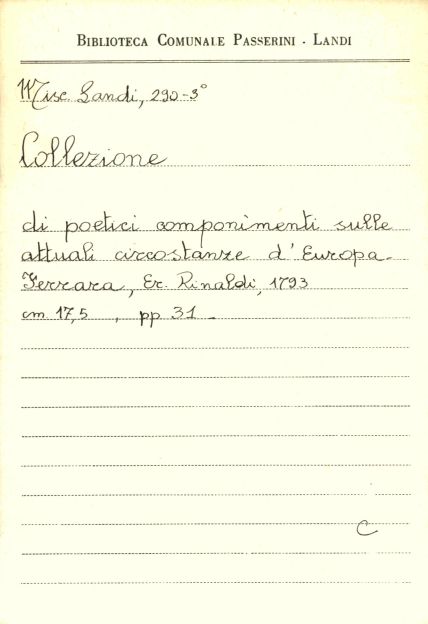 BIBLIOTECA COMUNALE PASSERINI - LANDI
Misc. Landi, 290-3°
Collezione
di poetici componimenti sulle
attuali circostanze d'Europa.
Ferrara, Er. Rinaldi, 1793
cm 17,5 , pp 31 -
C